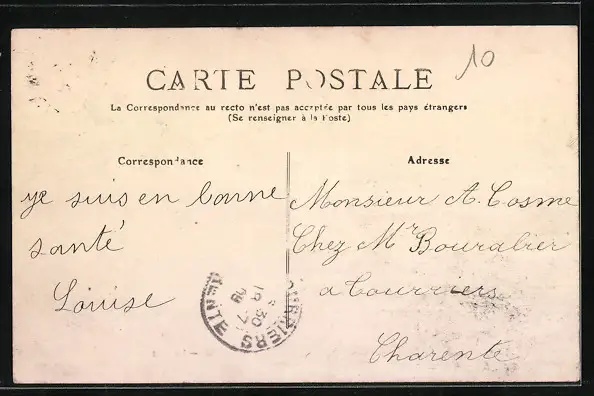 10
CARTE POSTALE
La Correspondance au recto n'est pas acceptée par tous les pays étrangers
(Se renseigner à la Poste)
Correspondance
Adresse
je suis en bonne
santé
Louise
Monsieur A. Cosme
Chez Mr Bouralier
a Courriers
Charente